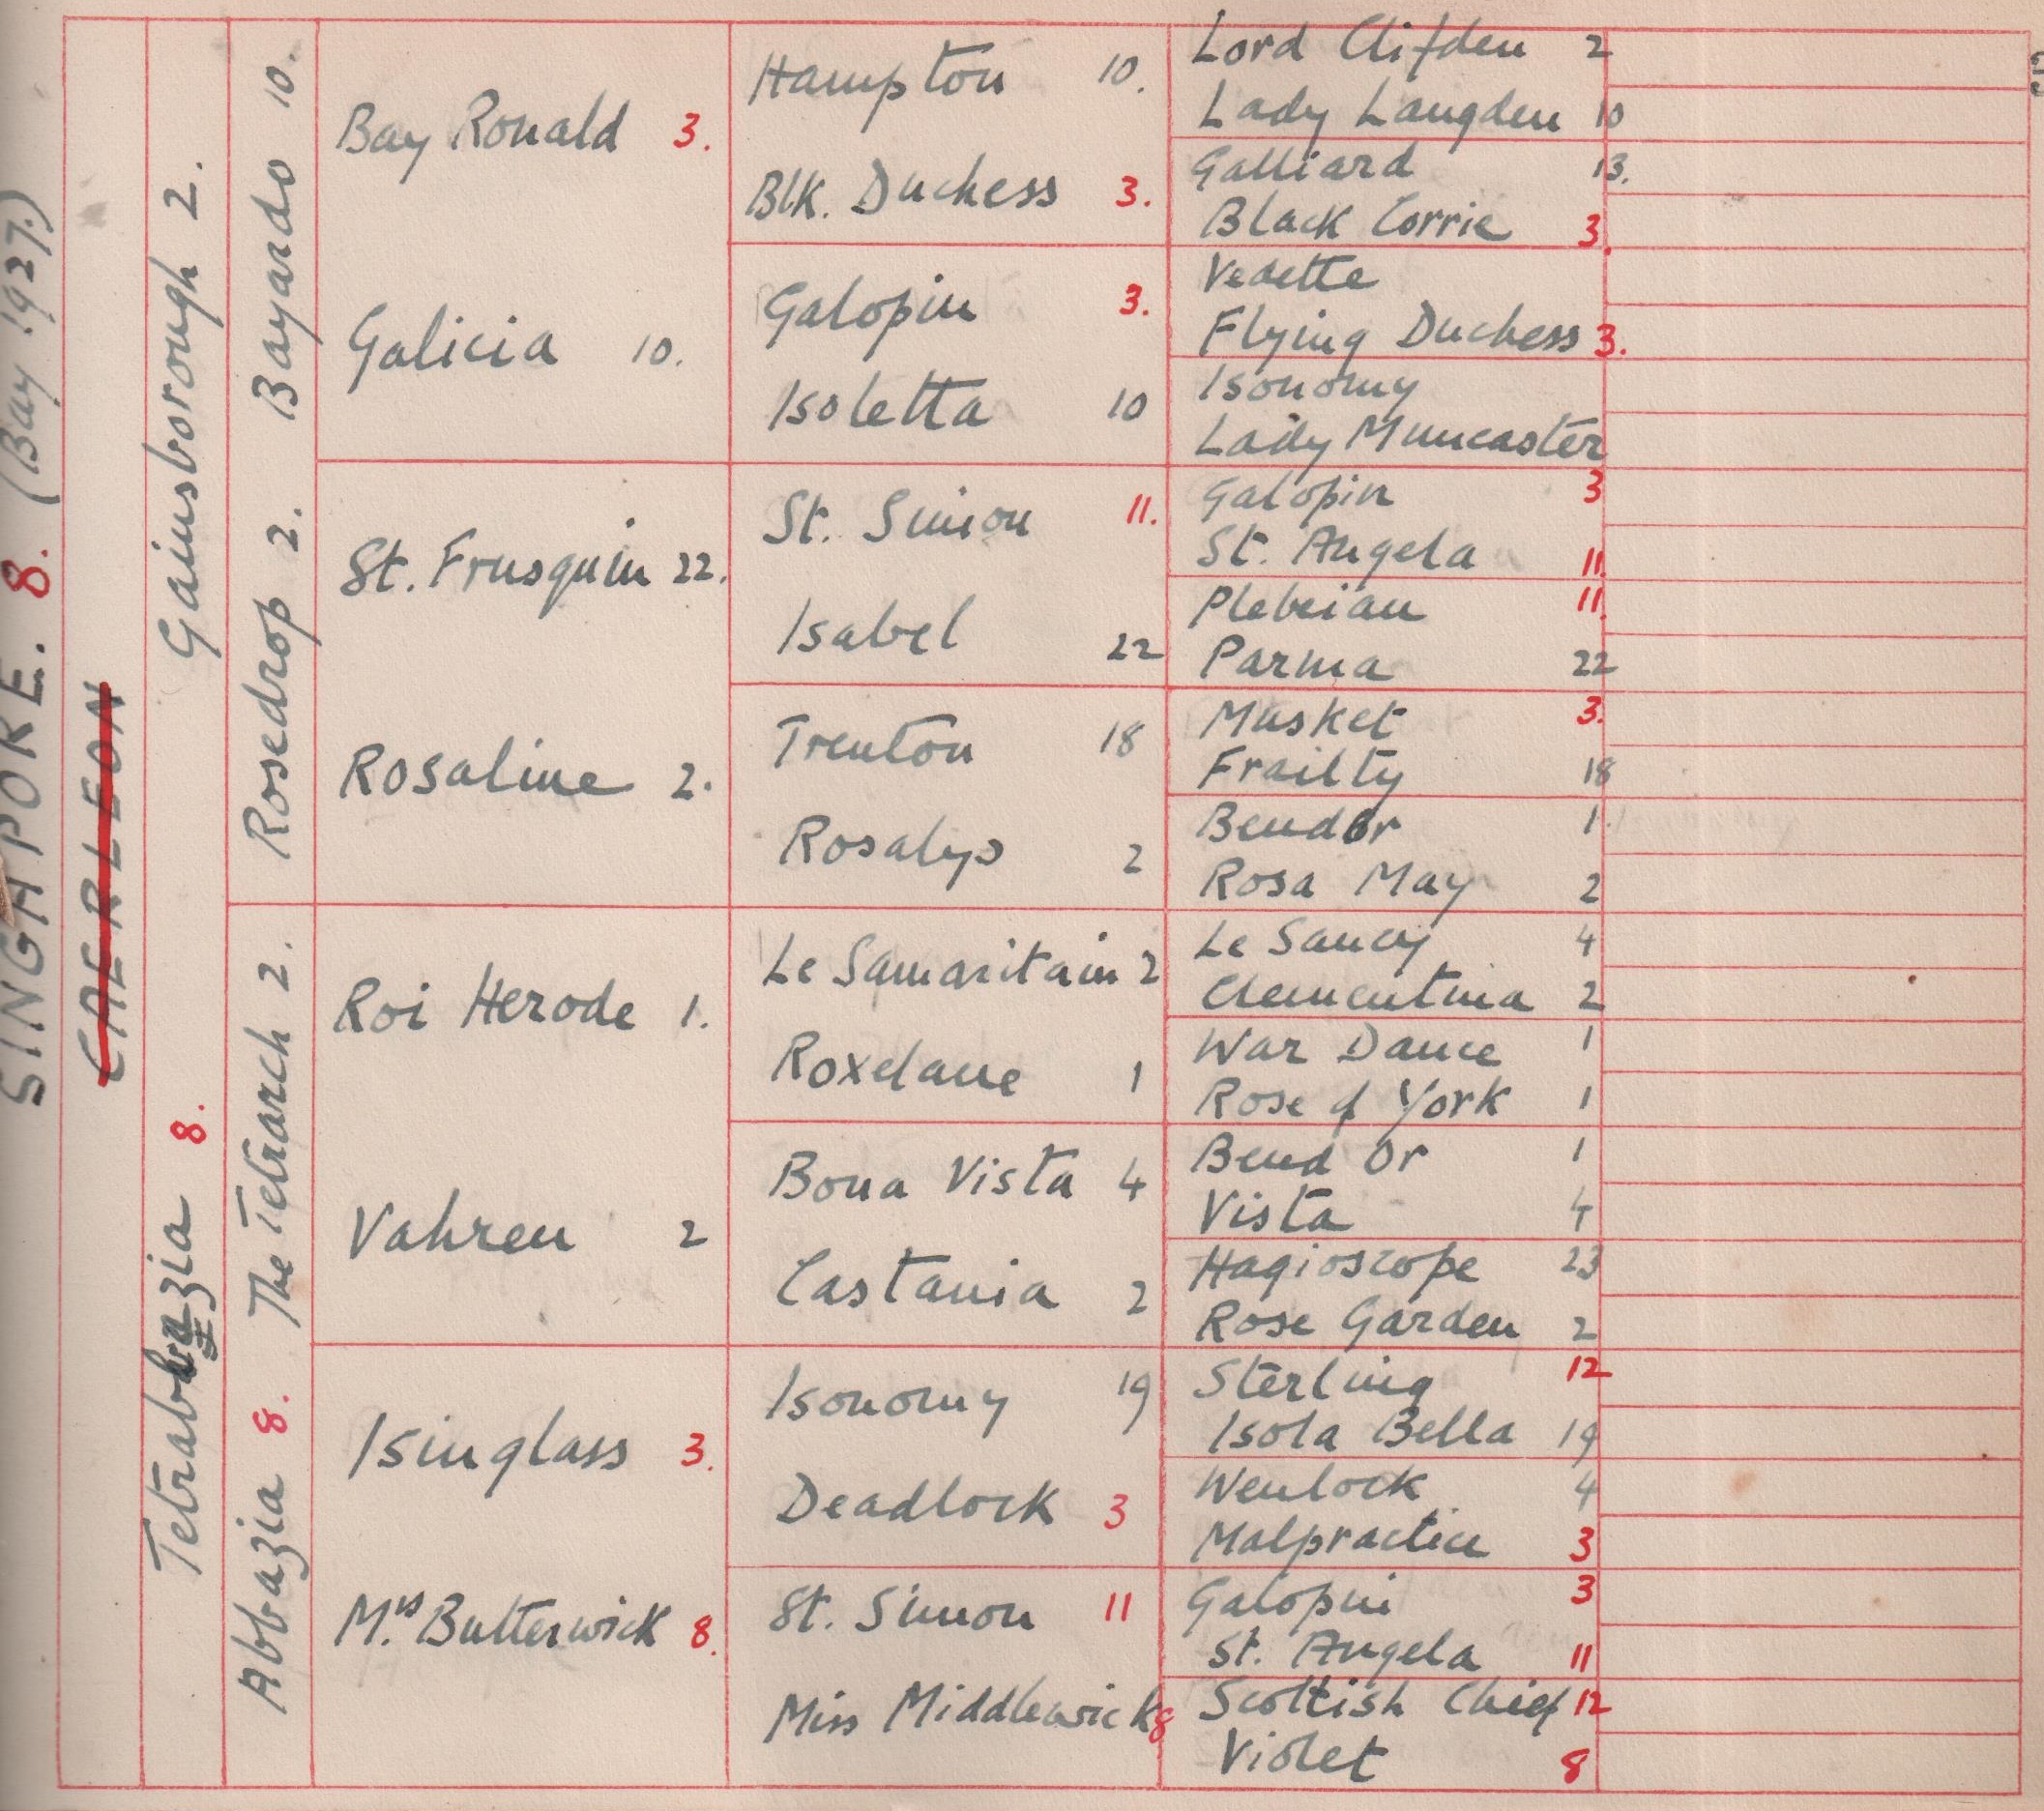 SINGAPORE. 8. (Bay 1927.)
CAERLEON
Gainsborough 2.
Tetrabbazia 8.
Bayardo 10.
Rosedrop 2.
The Tetrarch 2.
Abbazia 8.
Bay Ronald 3.
Galicia 10.
St. Frusquin 22.
Rosaline 2.
Roi Herode 1.
Vahren 2
Isinglass 3.
Mrs Butterwick 8.
Hampton 10.
Blk. Duchess 3.
Galopin 3.
Isoletta 10
St. Simon 11.
Isabel 22
Trenton 18
Rosalys 2
Le Samaritain 2
Roxelane 1
Bona Vista 4
Castania 2
Isonomy 19
Deadlock 3
St. Simon 11
Miss Middlewick 8
Lord Clifden 2
Lady Langden 10
Galliard 13.
Black Corrie 3.
Vedette
Flying Duchess 3.
Isonomy
Lady Muncaster
Galopin 3
St. Angela 11.
Plebeian 11.
Parma 22
Musket 3.
Frailty 18
BendOr 1.
Rosa May 2
Le Sancy 4
Clementina 2
War Dance 1
Rose of York 1
Bend Or 1
Vista 4
Hagioscope 23
Rose Garden 2
Sterling 12
Isola Bella 19
Wenlock 4
Malpractice 3
Galopin 3
St. Angela 11
Scottish Chief 12
Violet 8